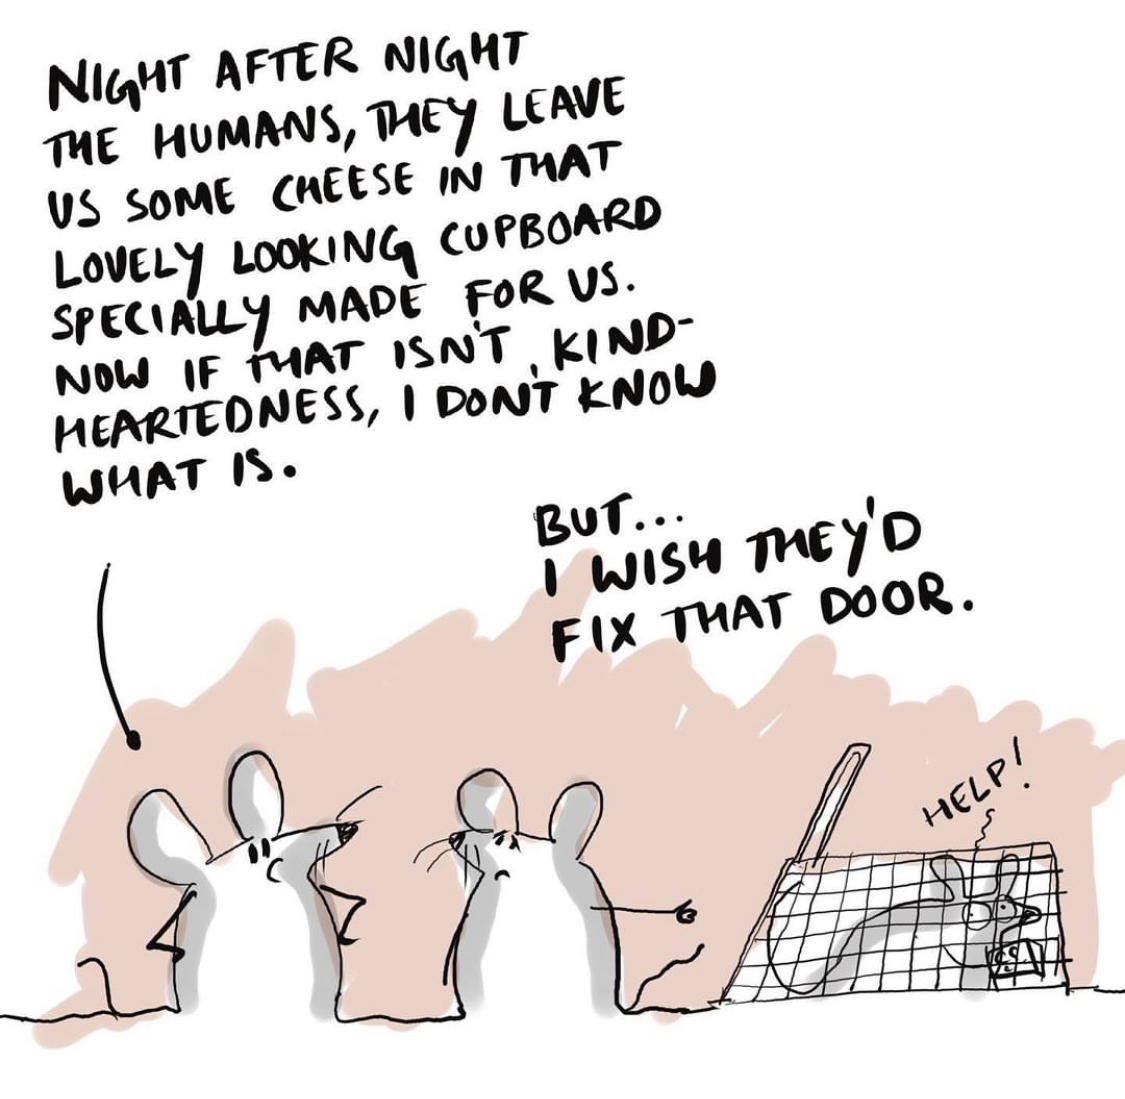 NIGHT AFTER NIGHT
THE HUMANS, THEY LEAVE
US SOME CHEESE IN THAT
LOVELY LOOKING CUPBOARD
SPECIALLY MADE FOR US.
NOW IF THAT ISN'T KIND-
HEARTEDNESS, I DON'T KNOW
WHAT IS.
BUT...
I WISH THEY'D
FIX THAT DOOR.
HELP!